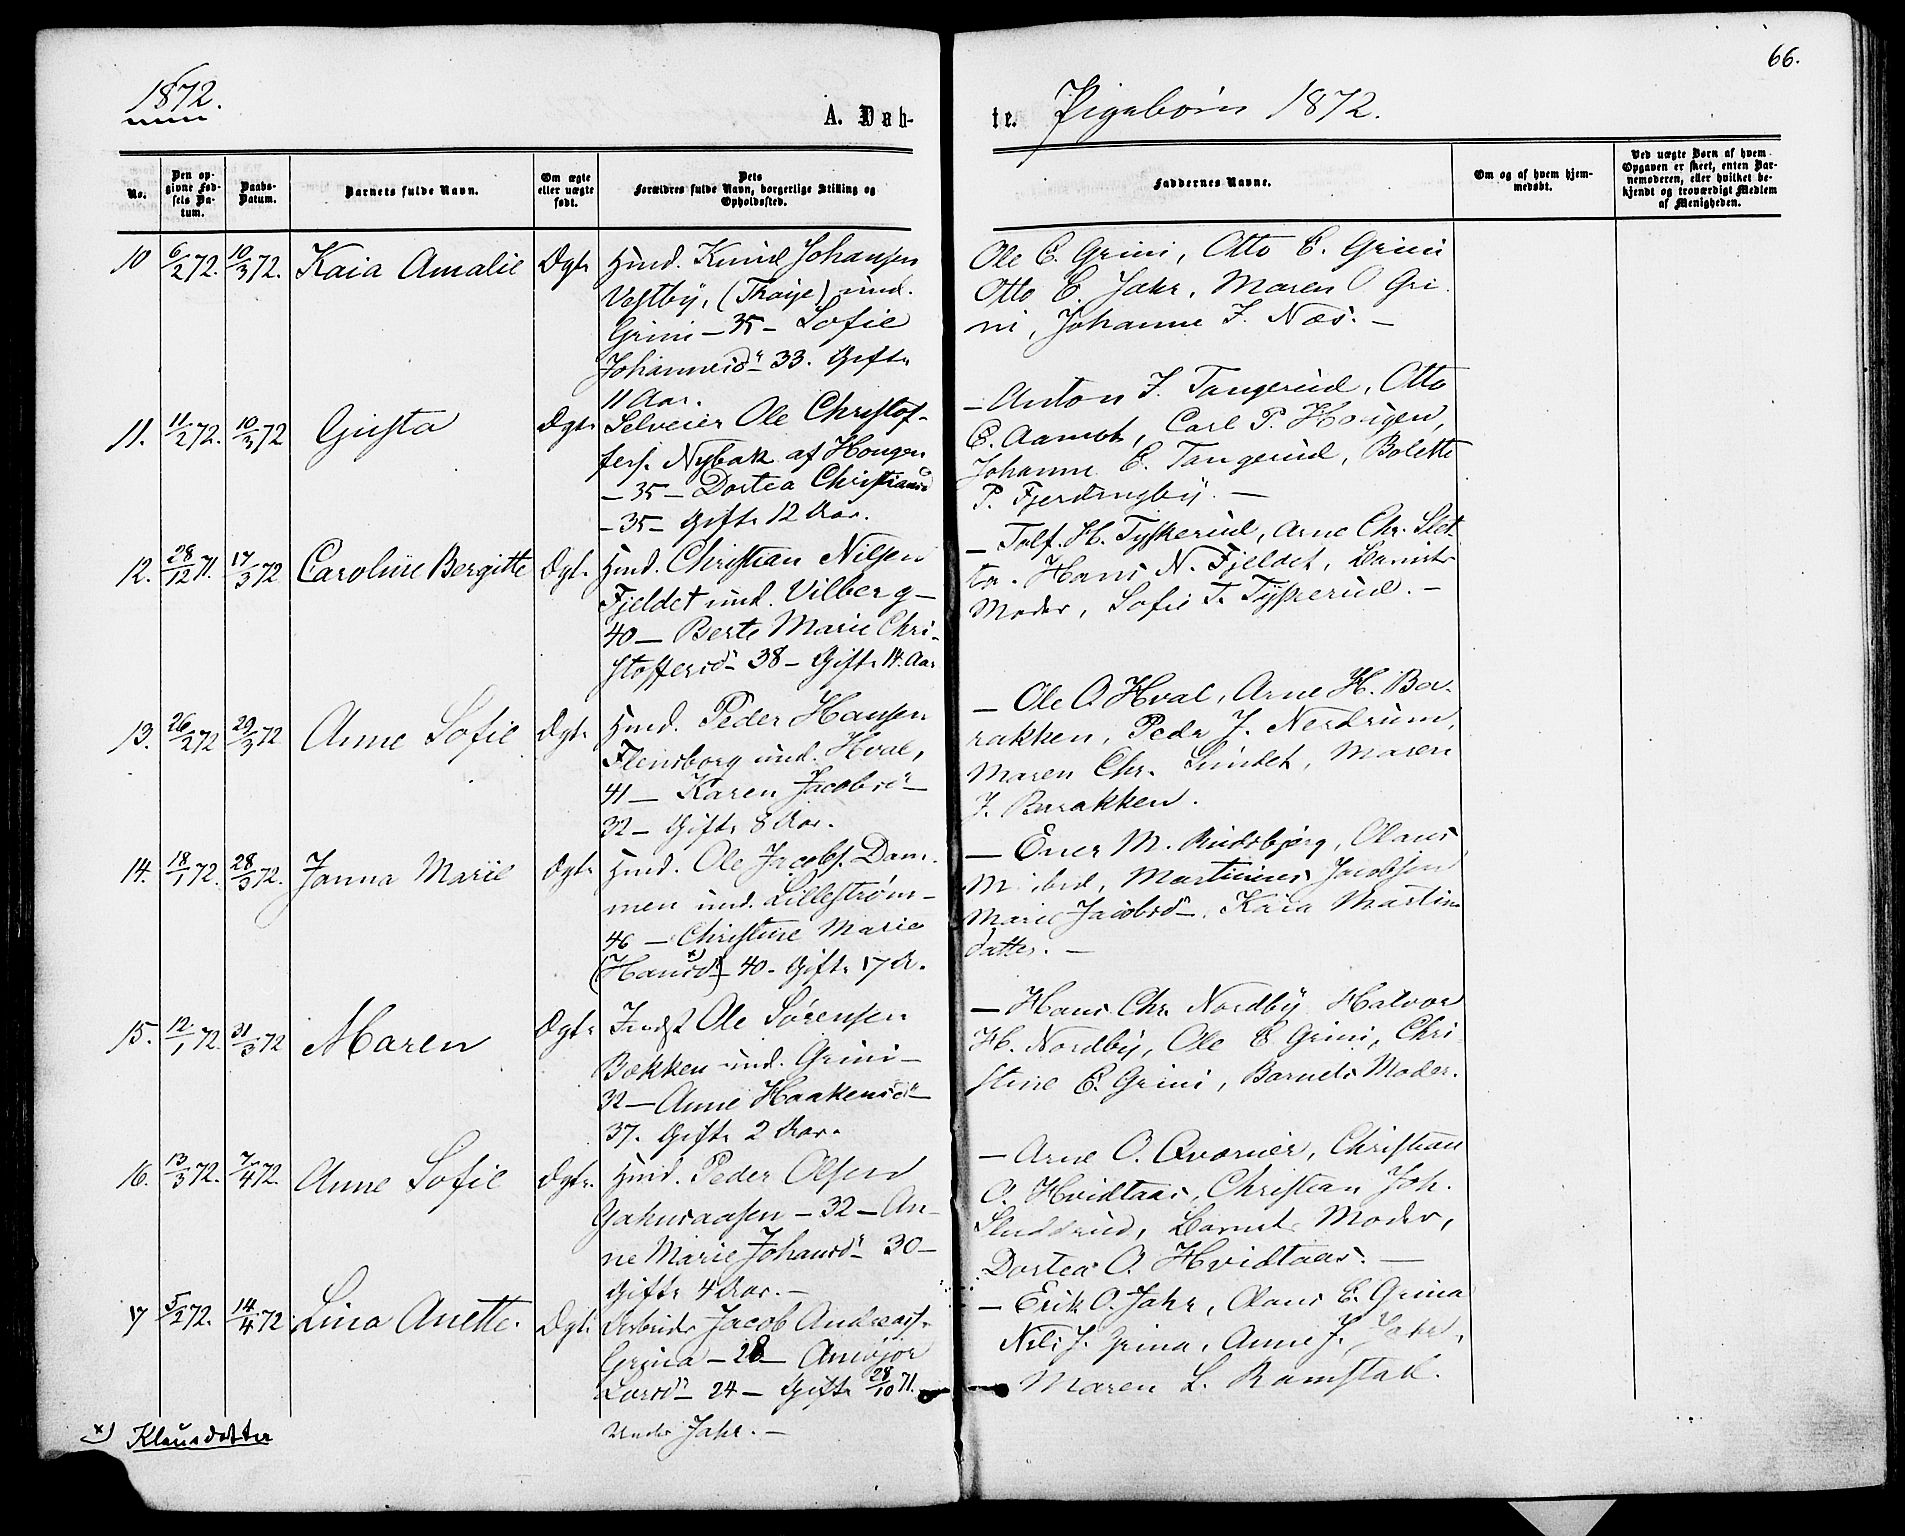 66.
1872.
A. Døb-
te.
Pigebørn 1872.
No.
Den op-
givne Fød-
sels Da-
tum.
Daabs-
Datum.
Barnets fulde Navn.
Om ægte
eller uægte
født.
Dets
Forældres fulde Navn, borgerlige Stilling og
Opholdssted.
Faddernes Navne.
Om og af hvem hjem-
medøbt.
Ved uægte Barn af hvem
Opgaven er skeet, enten Bar-
nemoderen, eller hvilket be-
kjendt og troværdigt Medlem
af Menigheden.
10 6/2 72. 10/3 72. Kaia Amalie Ægte
Hmd. Knud Johansen
Vestby, (Thoije) und.
Grini – 35 – Sofie
Johannesd – 33. Gifte
11 Aar.
Ole E. Grini, Otto E. Grini
Otto E. Jahr, Maren O Gri-
ni, Johanne J. Næs. –
11. 11/2 72. 10/3 72 Gusta Ægte
Selveier Ole Christof-
fers. Nybak af Hougen
– 35 – Dortea Christiansd
– 35 – Gifte 12 Aar.
– Anton J. Tangerud, Otto
E. Aamot, Carl P. Hougen,
Johanne E. Tangerud, Bolette
P. Fjerdingby. –
12. 28/12 71. 17/3 72 Caroline Bergitte Ægte
Hmd. Christian Nilsen
Fjeldet und. Vilberg –
40 – Berte Marie Chri-
stoffersd – 38 – Gifte 14. Aar
– Tolf. H. Tyskerud, Arne Chr. Slet-
ta. Hans N. Fjeldet, Barnets
Moder, Sofie T. Tyskerud. –
13. 26/2 72 29/3 72 Anne Sofie Ægte
Hmd. Peder Hansen
Flensborg und. Hval,
41 – Karen Jacobsd –
32 – Gifte 8 Aar.
– Ole O Hval, Arne H. Ba-
rakken, Peder J. Nerdrum,
Maren Chr. Sundet, Maren
J. Barakken.
14. 18/1 72. 28/3 72. Janna Marie Ægte
Hmd. Ole Jacobs. Dam-
men und. Lillestrøm –
46 – Christine Marie
(Hansd x) – 40 – Gifte 17 A.
– Ener M. Rudsbjørg, Olaus
Martinus Jacobsen
Marie Jacobsd –, Kaia Martins
datter. –
15. 12/1 72. 31/3 72 Maren Ægte
Indst Ole Sørensen
Bækken und. Grini –
32 – Anne Haakensd –
37. Gifte 2 Aar.
– Hans Chr. Nordby Halvor
H. Nordby, Ole E Grini, Chri-
stine E. Grini, Barnets Moder.
16. 13/3 72. 7/4 72. Anne Sofie Ægte.
Hmd. Peder Olsen
Gahnsaasen – 32 – An-
ne Marie Johansd – 30 –
Gifte 4 Aar. –
– Arne O. Qværner, Christian
O. Hvidtaas, Christian Joh.
Sluddrud, Barnets Moder,
Dortea O. Hvidtaas. –
17 5/2 72. 14/4 72 Lina Anette. Ægte
Arbeider Jacob Andreass.
Grina – 28 – Ansøjor
Larsd – 24 – Gifte 28/10 71.
Under Jahr. –
– Erik O. Jahr, Olaus E. Grina
Nils J. Grina, Anne J. Jahr,
Maren L. Ramstad.
x) Klausdatter